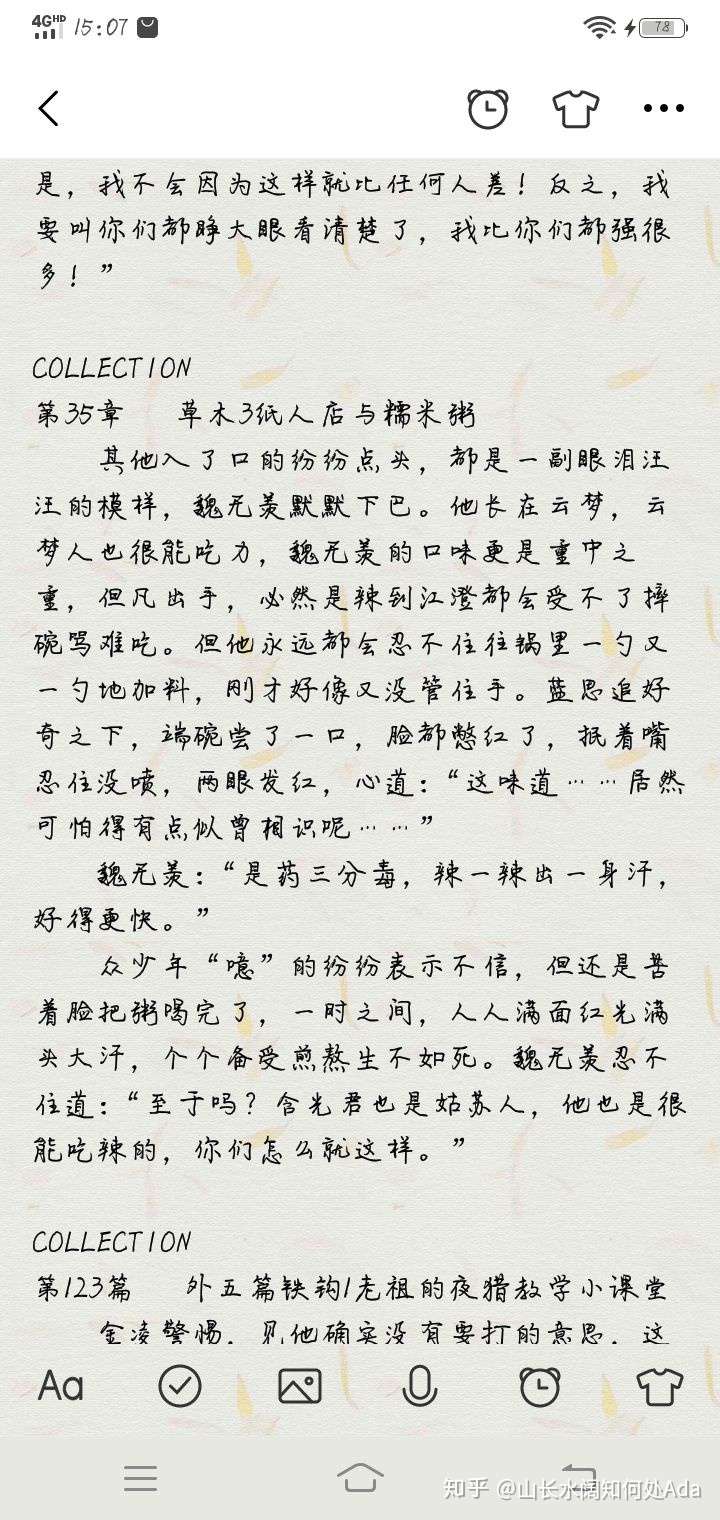 4G HD 15:07 78
是，我不会因为这样就比任何人差！反之，我
要叫你们都睁大眼看清楚了，我比你们都强很
多！”
COLLECTION
第35章 草木3纸人店与糯米粥
其他入了口的纷纷点头，都是一副眼泪汪
汪的模样，魏无羡默默下巴。他长在云梦，云
梦人也很能吃力，魏无羡的口味更是重中之
重，但凡出手，必然是辣到江澄都会受不了摔
碗骂难吃。但他永远都会忍不住往锅里一勺又
一勺地加料，刚才好像又没管住手。蓝思追好
奇之下，端碗尝了一口，脸都憋红了，抿着嘴
忍住没喷，两眼发红，心道：“这味道……居然
可怕得有点似曾相识呢……”
魏无羡：“是药三分毒，辣一辣出一身汗，
好得更快。”
众少年“噫”的纷纷表示不信，但还是苦
着脸把粥喝完了，一时之间，人人满面红光满
头大汗，个个备受煎熬生不如死。魏无羡忍不
住道：“至于吗？含光君也是姑苏人，他也是很
能吃辣的，你们怎么就这样。”
COLLECTION
第123篇 外五篇铁钩1老祖的夜猎教学小课堂
金凌警惕，见他确实没有要打的意思，这
Aa
知乎 @山长水阔知何处Ada